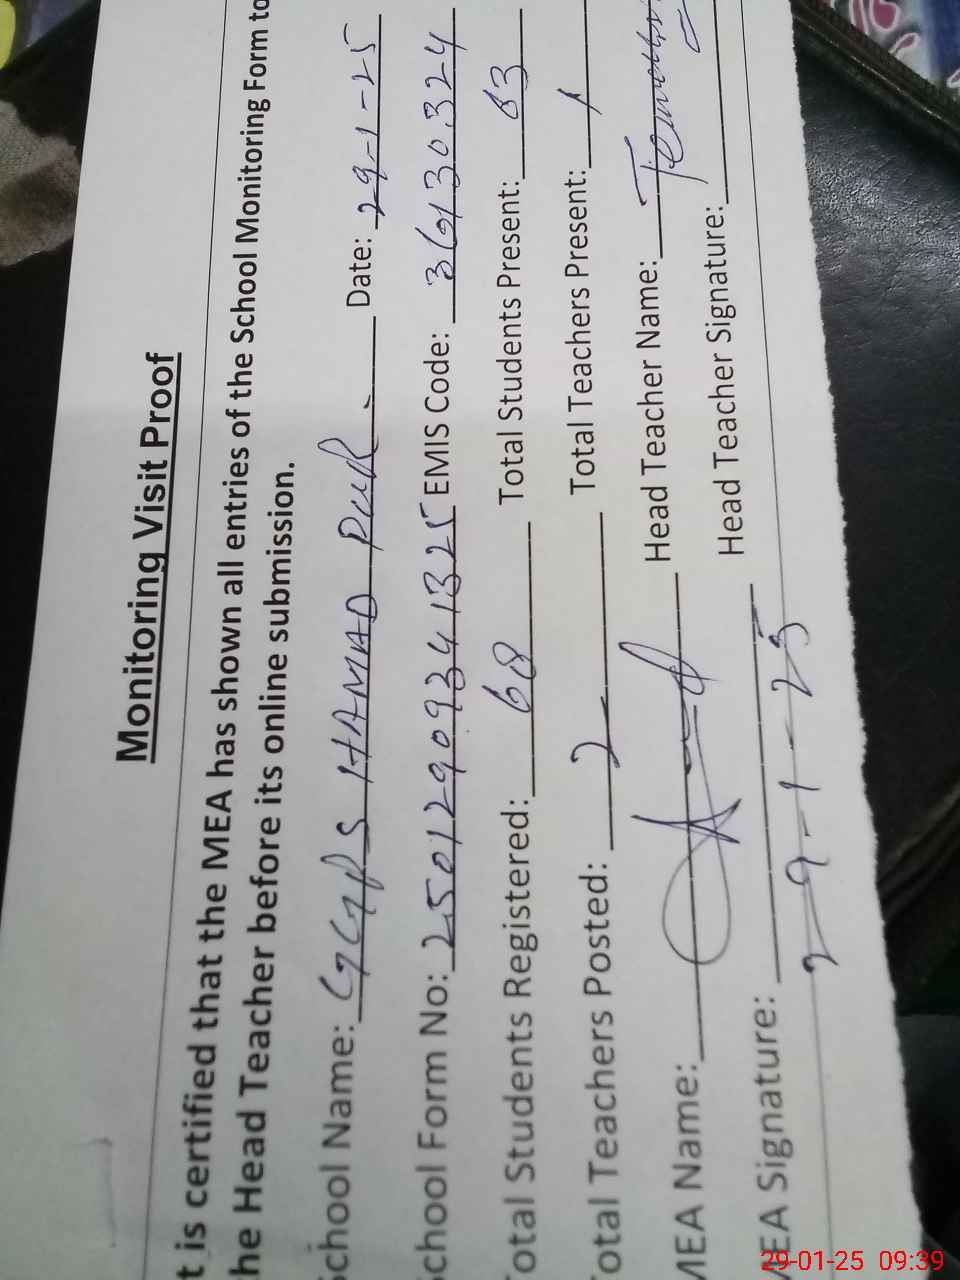 Monitoring Visit Proof
t is certified that the MEA has shown all entries of the School Monitoring Form to
he Head Teacher before its online submission.
School Name: GGPS HAMAD PUR Date: 29-1-25
School Form No: 25012909341325 EMIS Code: 36130324
Total Students Registered: 68 Total Students Present: 63
Total Teachers Posted: 2 Total Teachers Present: 1
MEA Name: Head Teacher Name:
MEA Signature: Head Teacher Signature:
29-1-25
29-01-25 09:39